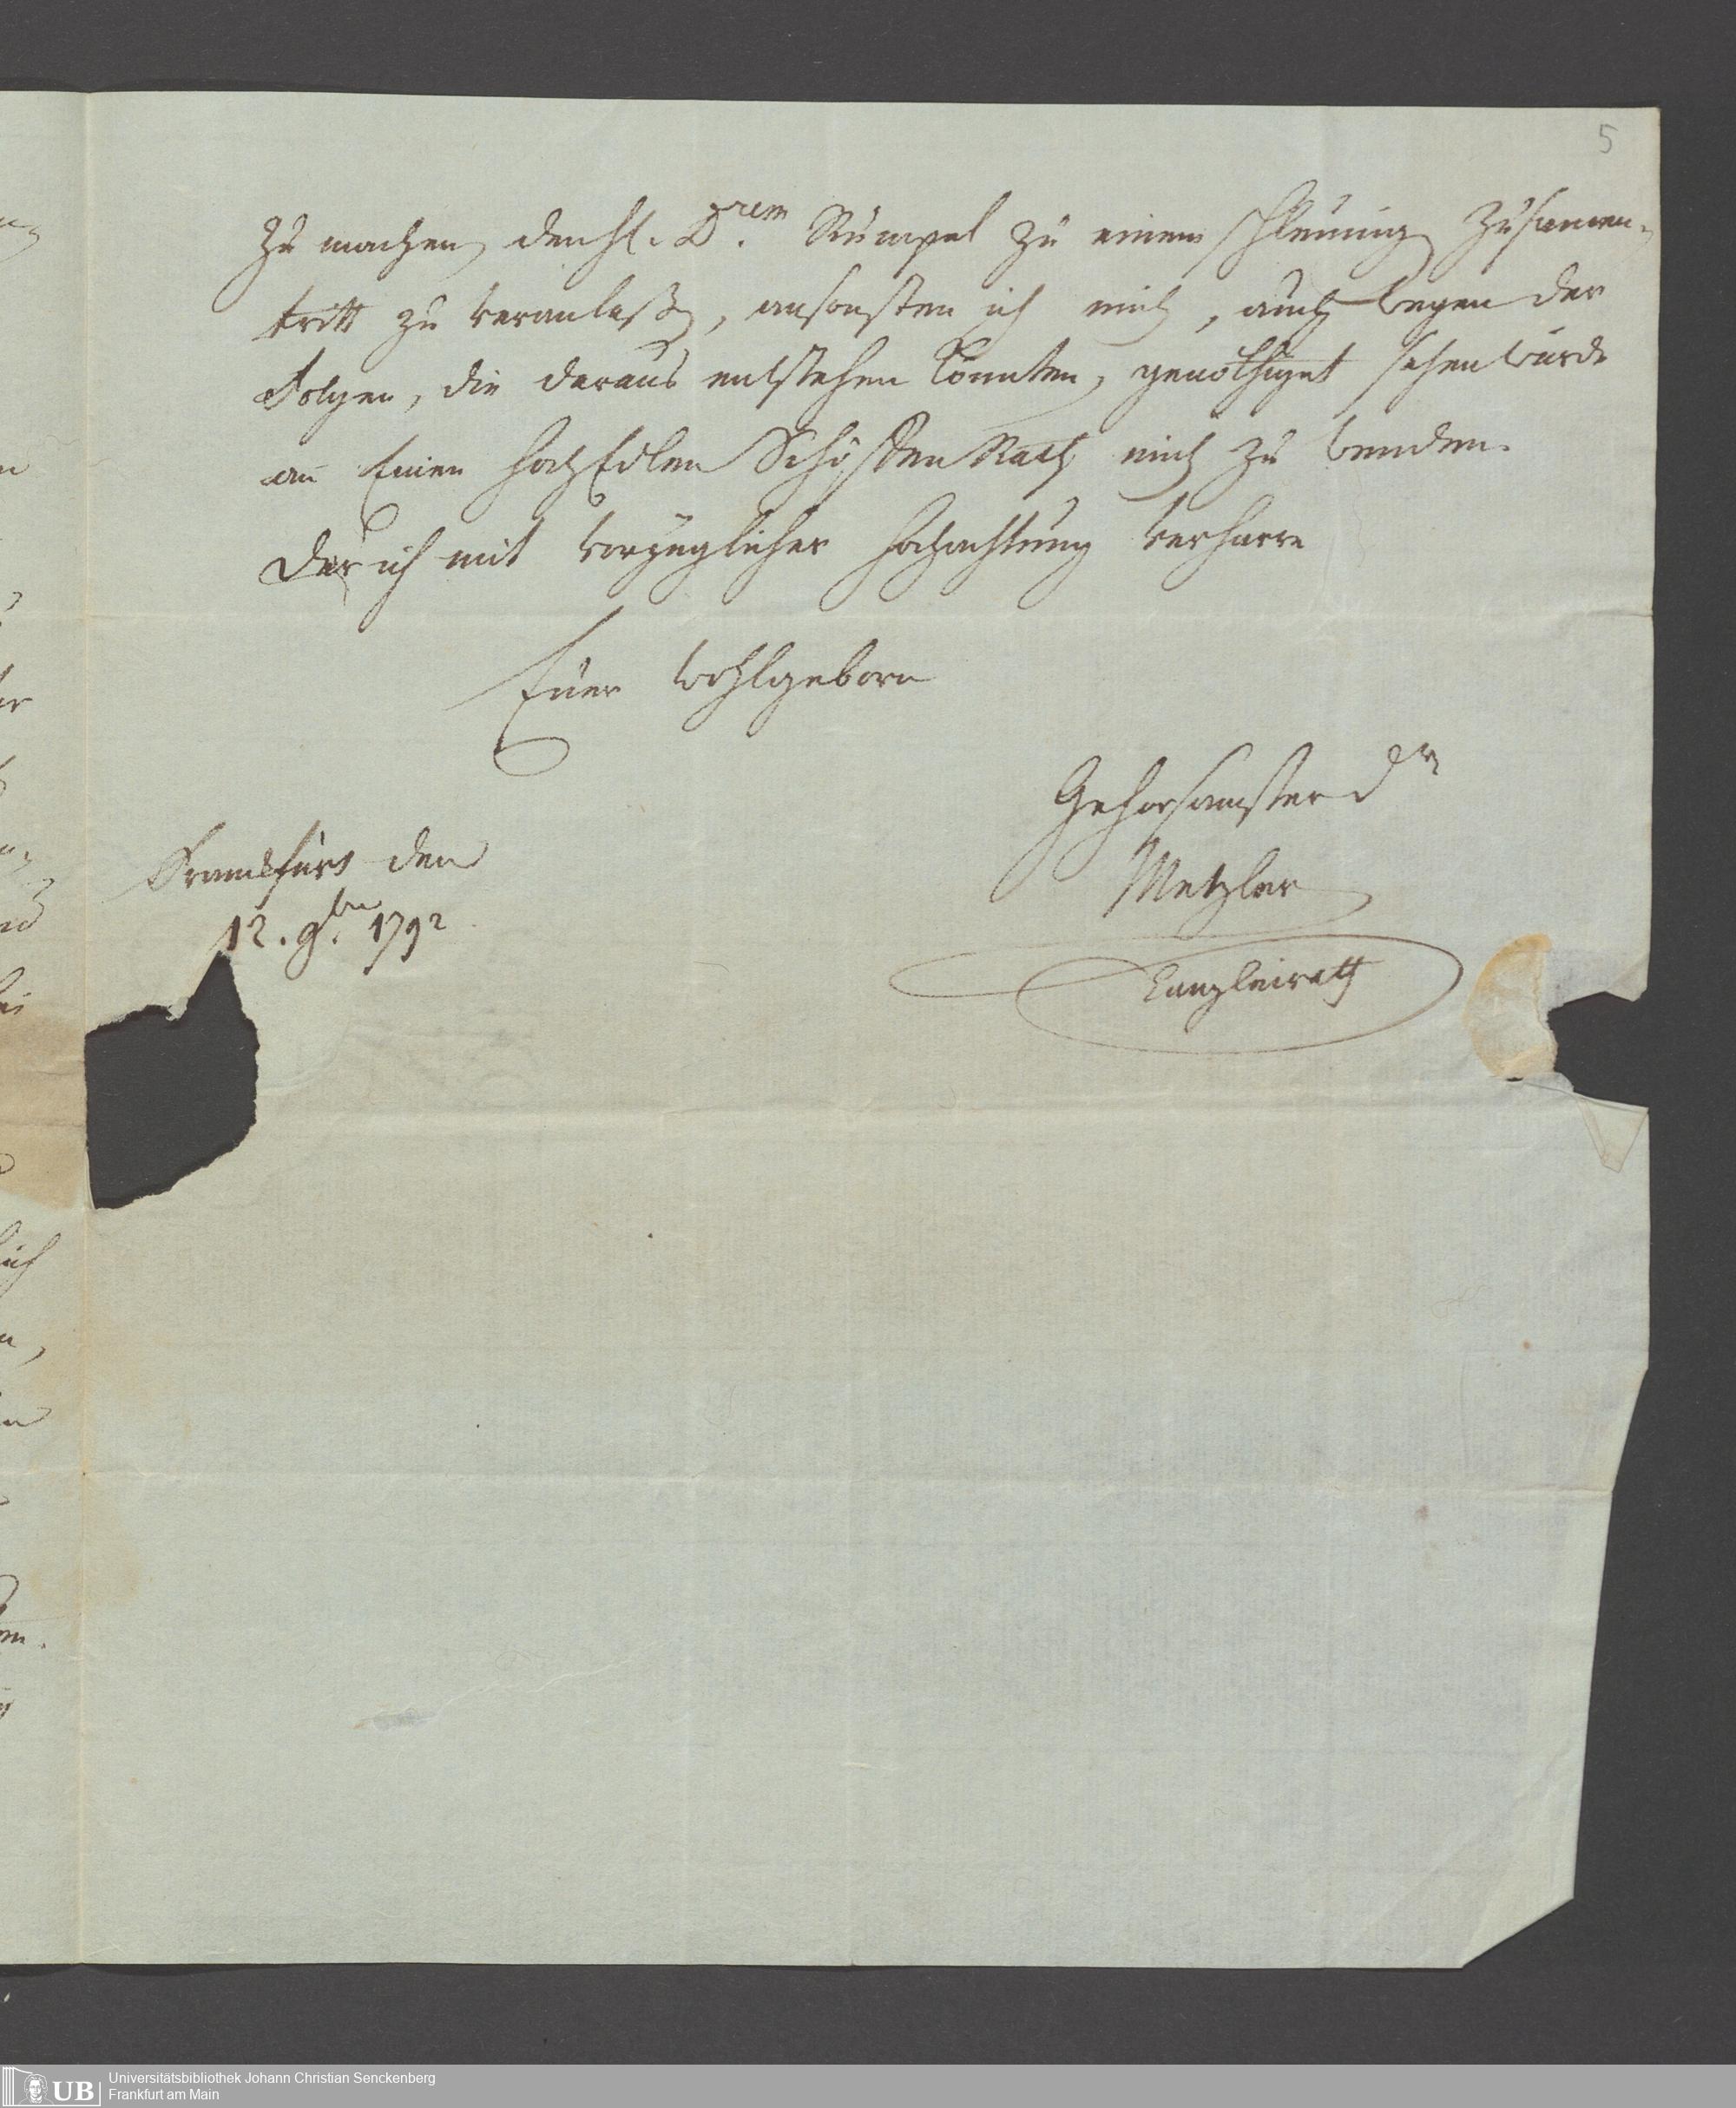 5
zu machen, den H. D.rem Rümpel zu einem schleunig Zusamen-
tritt zu veranlaßen, ansonsten ich mich, auch wegen der
Folgen, die daraus entstehen könnten, genöthiget sehen würde
an Einen HochEdlen Schöffen Rath mich zu wenden.
Der ich mit vorzüglicher Hochachtung verharre
Euer Wohlgeborn
Gehorsamster Dr
Metzler
Canzleirath
Franckfurt den
12. 9br. 1792
UB
Universitätsbibliothek Johann Christian Senckenberg
Frankfurt am Main